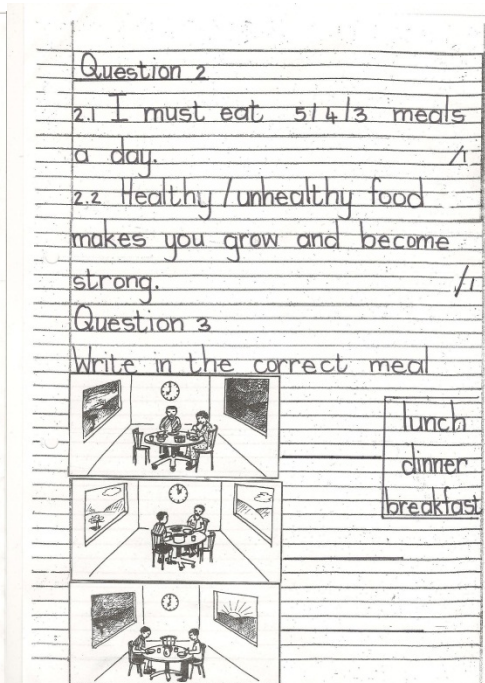 Question 2
2.1 I must eat 5/4/3 meals
a day. /1
2.2 Healthy/unhealthy food
makes you grow and become
strong. /1
Question 3
Write in the correct meal
lunch
dinner
breakfast